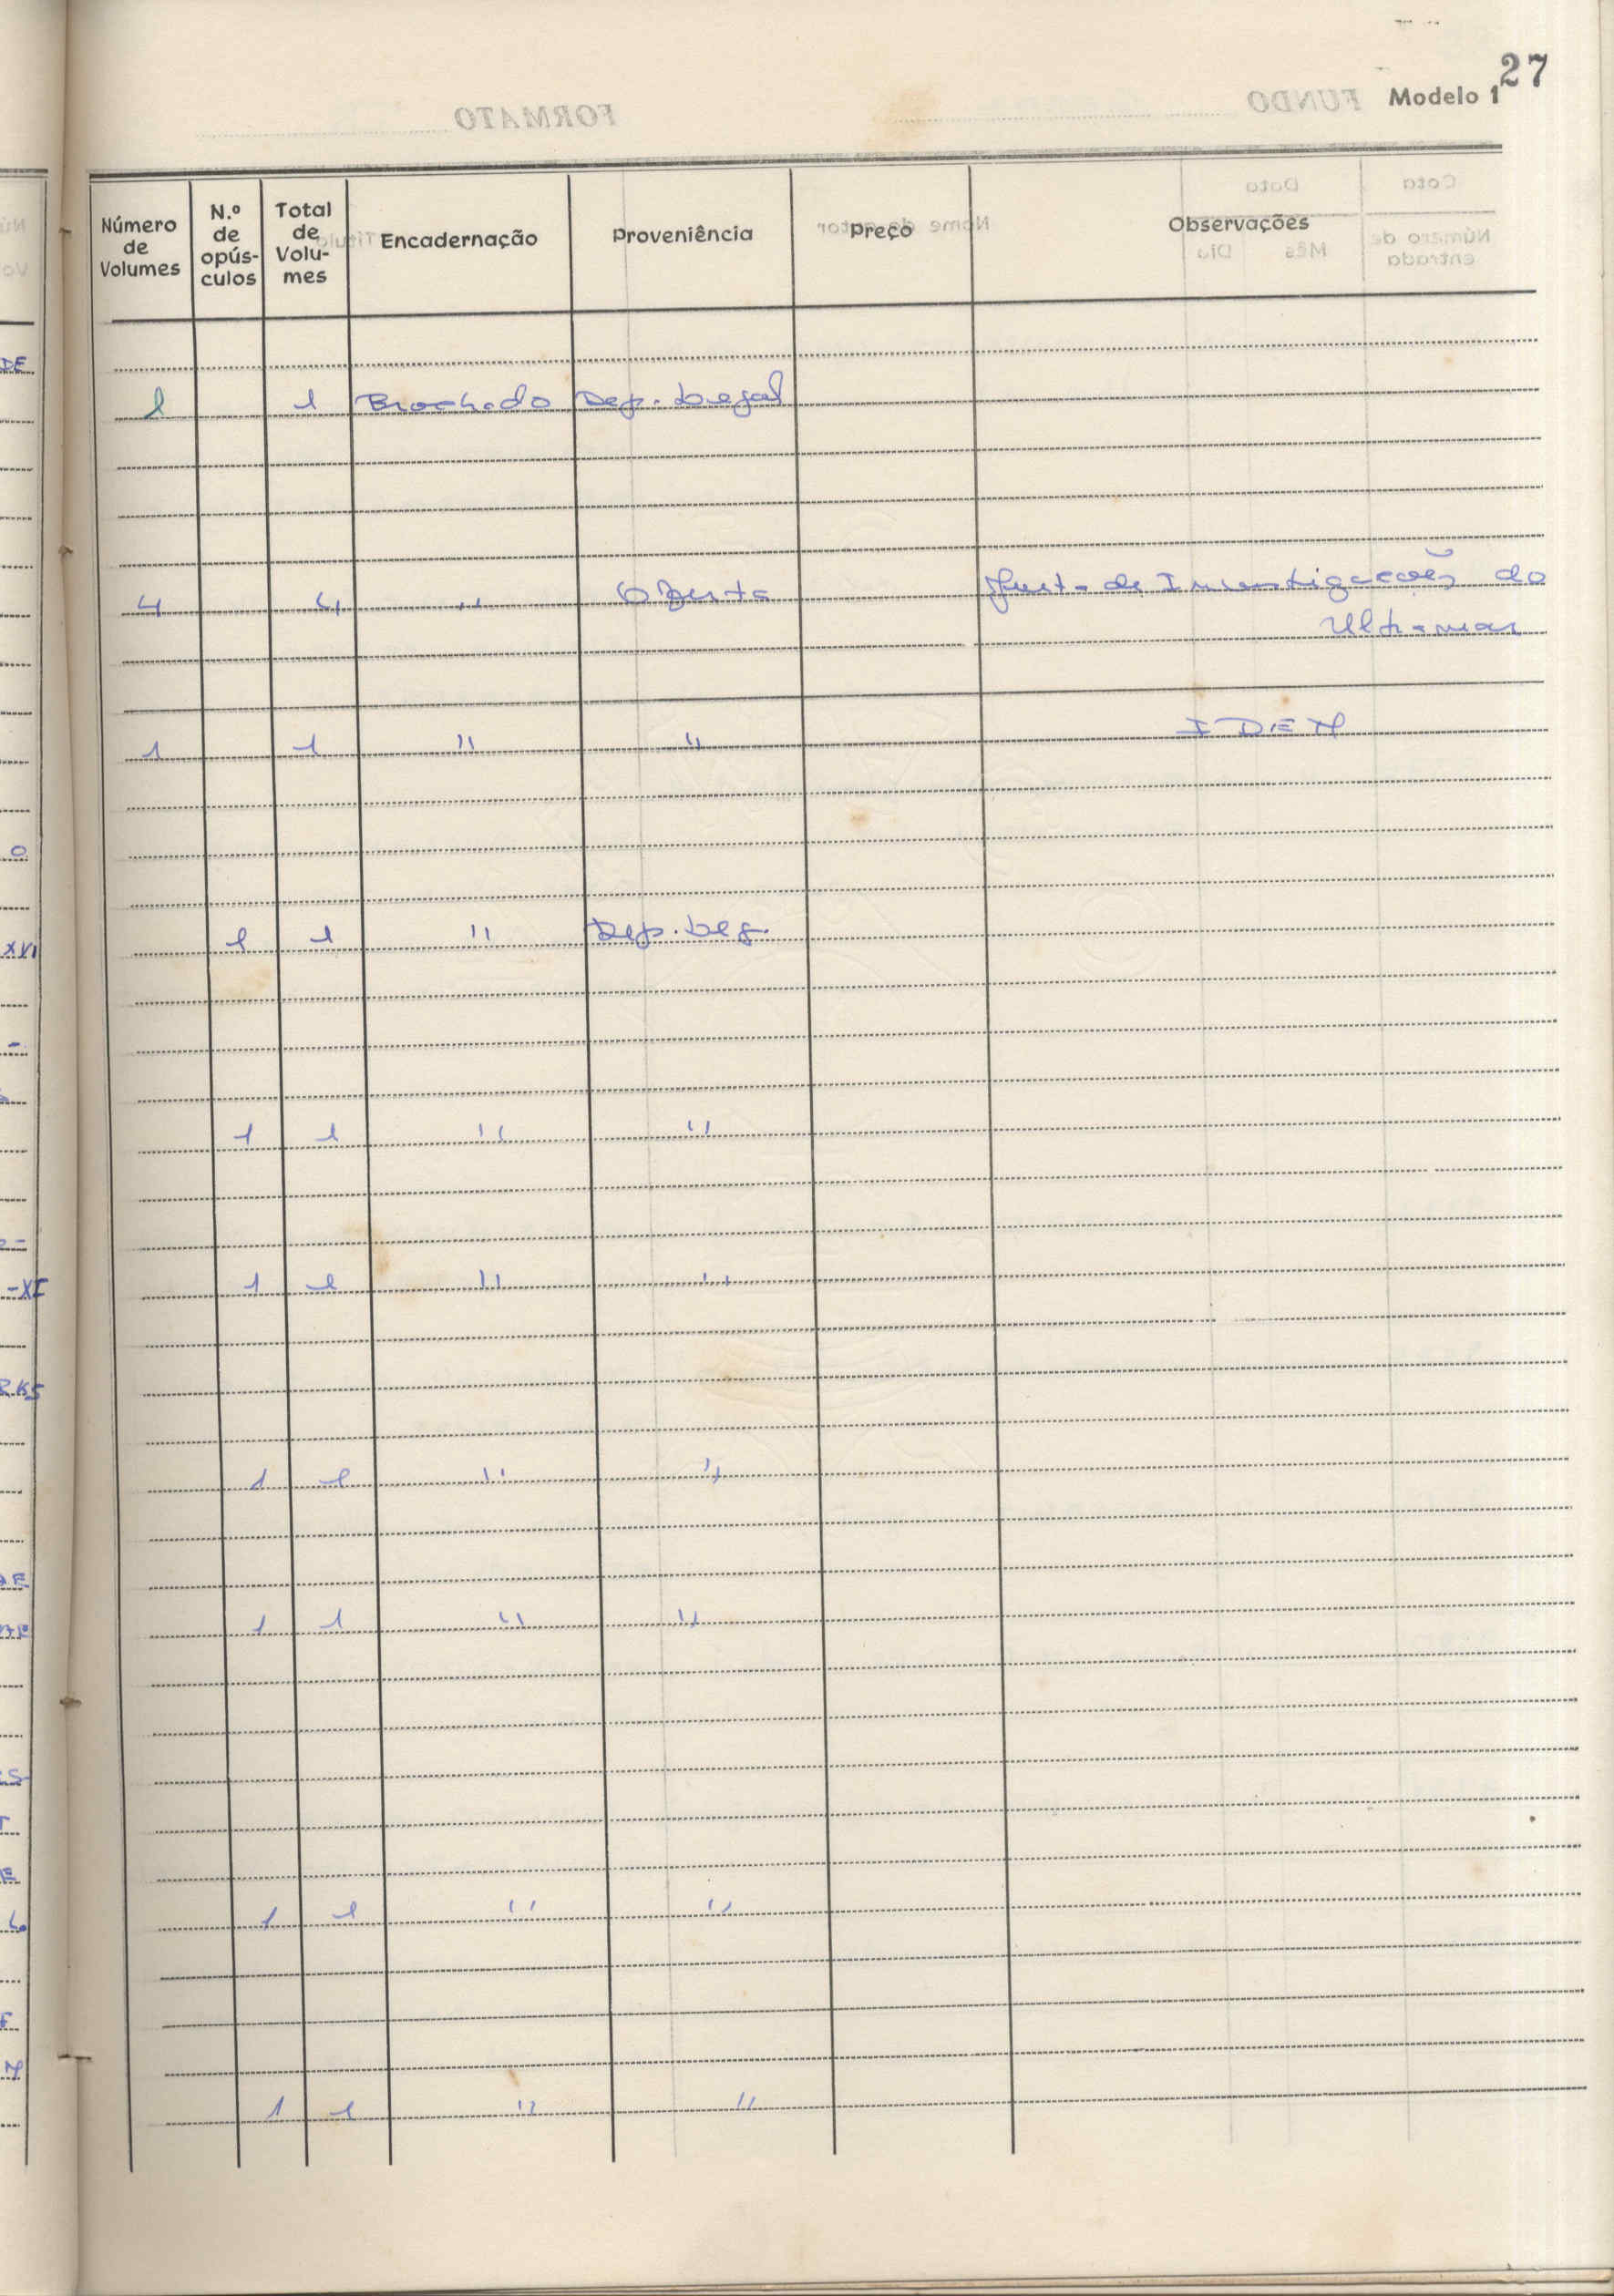 27
Modelo 1
Número de Volumes | N.º de opús-culos | Total de Volu-mes | Encadernação | Proveniência | Preço | Observações
1 | 1 | Brochado | Dep. Legal
4 | 4 | " | Oferta | Junta de Investigacoẽs do
Ultramar
1 | 1 | " | " | IDEM
1 | 1 | " | Dep. Leg.
1 | 1 | " | "
1 | 1 | " | "
1 | 1 | " | "
1 | 1 | " | "
1 | 1 | " | "
1 | 1 | " | "